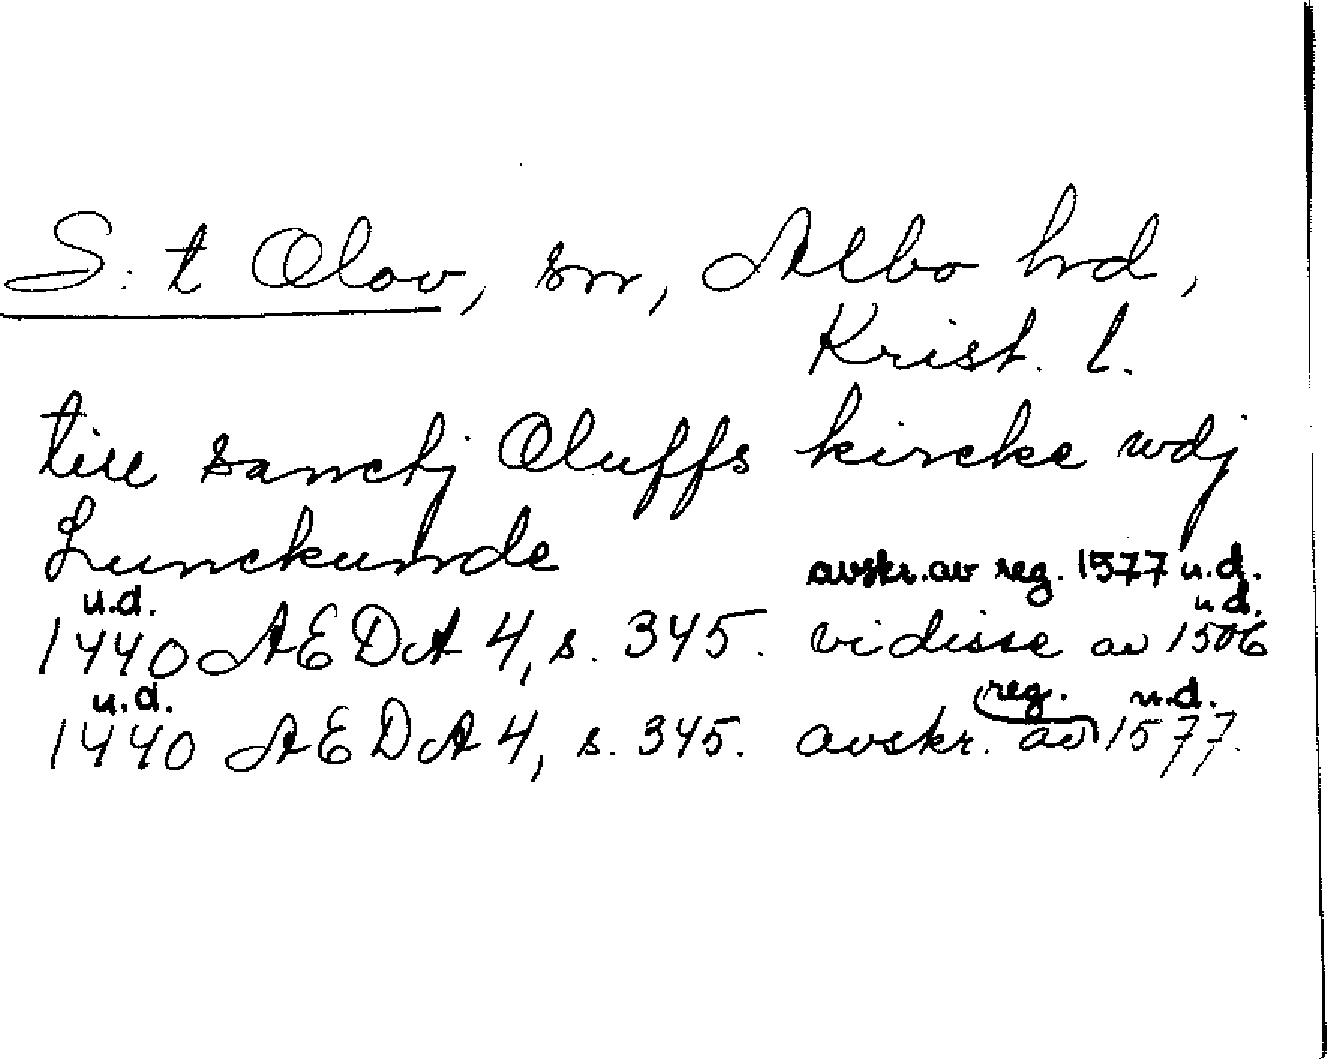 S:t Olov, sn, Albo hrd,
Krist. l.
till sanctj Oluffs kircke wdj
Lunckunde
avskr. av reg. 1577 u.d.
u.d. u.d.
1440 AEDA 4, s. 345. vidisse av 1506
u.d. reg. u.d.
1440 AEDA 4, s. 345. avskr. av 1577.